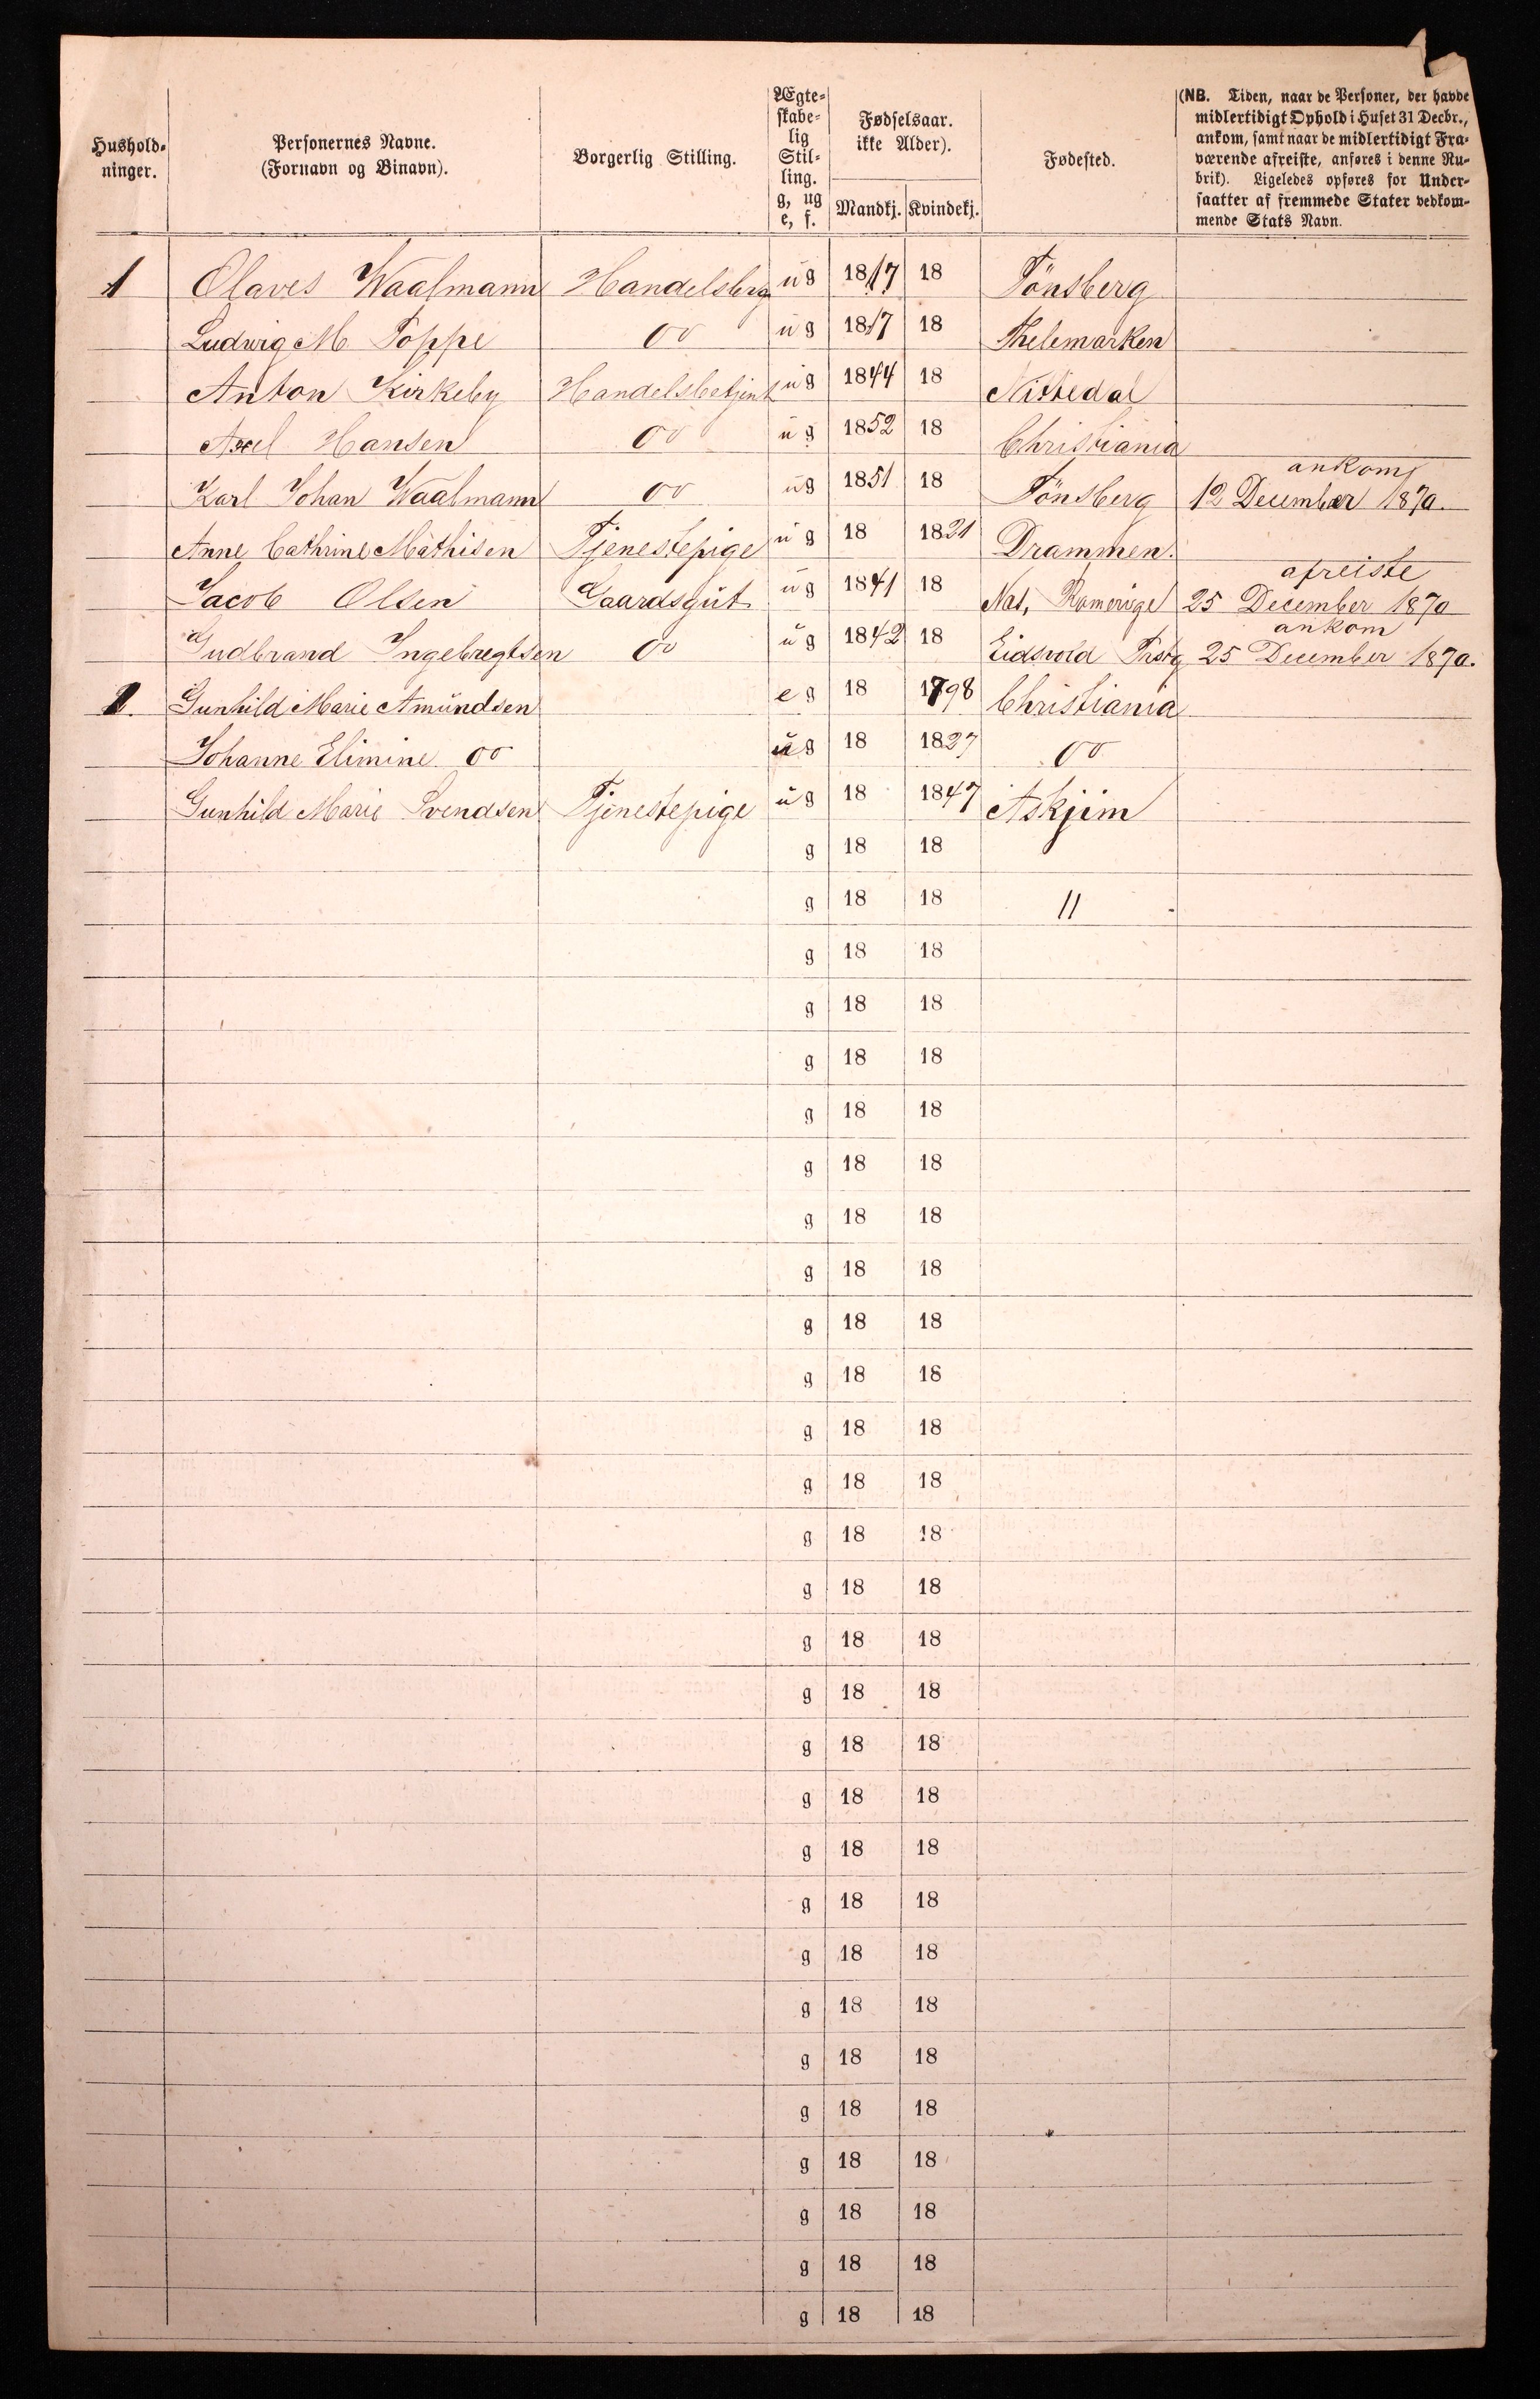 Hushold-
ninger.
Personernes Navne.
(Fornavn og Binavn).
Borgerlig Stilling.
Ægte-
skabe-
lig
Stil-
ling.
g, ug
e, f.
Fødselsaar.
ikke Alder).
Mandkj. Kvindekj.
Fødested.
(NB. Tiden, naar de Personer, der havde
midlertidigt Ophold i Huset 31 Decbr.,
ankom, samt naar de midlertidigt Fra-
værende afreiste, anføres i denne Ru-
brik). Ligeledes opføres for Under-
saatter af fremmede Stater vedkom-
mende Stats Navn.
1 Olaves Waalmann Handelsbrg ug 1817 18 Tönsberg
Ludwig M Poppe oo ug 1817 18 Thelemarken
Anton Kirkeby Handelsbetjent ug 1844 18 Nittedal
Axel Hansen oo ug 1852 18 Christiania
ankom
Karl Johan Waalmann oo ug 1851 18 Tönsberg 12 December 1870.
Anne Cathrine Mathisen Tjenestepige ug 18 1821 Drammen.
afreiste
Jacob Olsen Gaardsgut ug 1841 18 Nas, Romerige 25 December 1870
ankom
Gudbrand Ingebregtsen oo ug 1842 18 Eidsvold Prstg 25 December 1870.
1. Gunhild Marie Amundsen e g 18 1798 Christiania
Johanne Elimine oo ug 18 1827 oo
Gunhild Marie Svendsen Tjenestepige ug 18 1847 Askjim
g 18 18
g 18 18 11
g 18 18
g 18 18
g 18 18
g 18 18
g 18 18
g 18 18
g 18 18
g 18 18
g 18 18
g 18 18
g 18 18
g 18 18
g 18 18
g 18 18
g 18 18
g 18 18
g 18 18
g 18 18
g 18 18
g 18 18
g 18 18
g 18 18
g 18 18
g 18 18
g 18 18
g 18 18
g 18 18